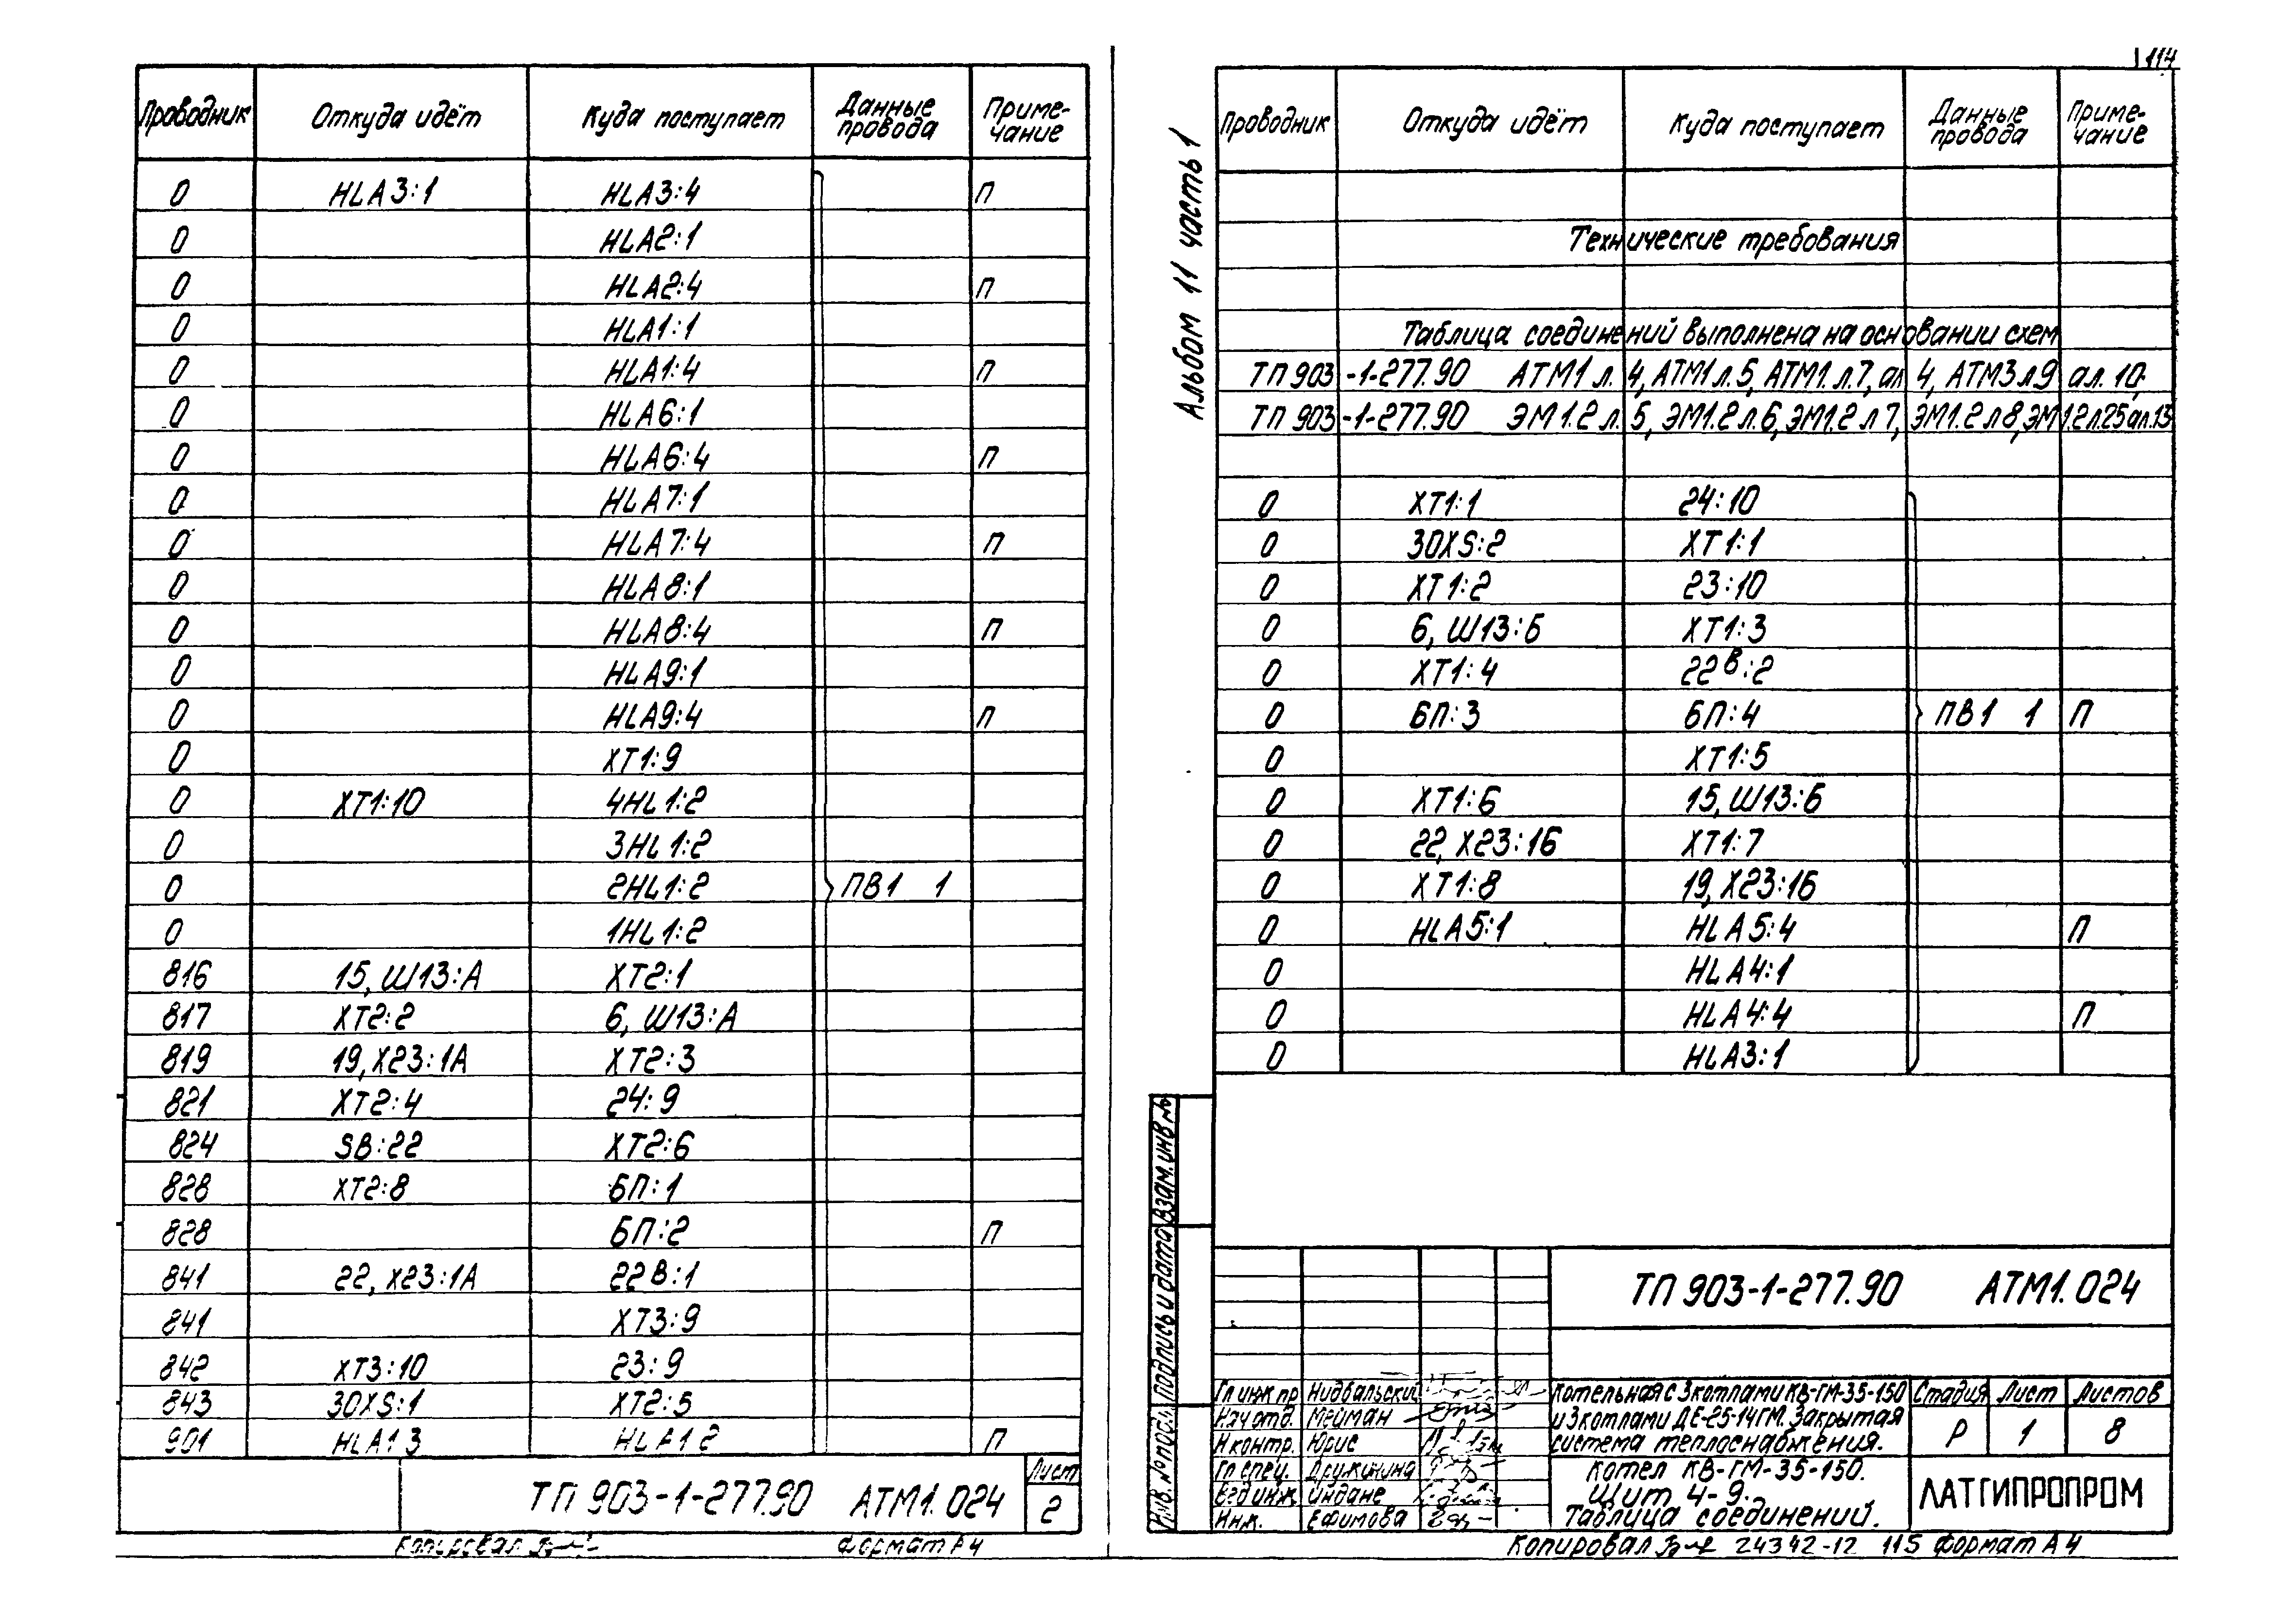 Проводник Откуда идёт Куда поступает Данные провода Приме-чание
0 HLA3:1 HLA3:4 П
0 HLA2:1
0 HLA2:4 П
0 HLA1:1
0 HLA1:4 П
0 HLA6:1
0 HLA6:4 П
0 HLA7:1
0 HLA7:4 П
0 HLA8:1
0 HLA8:4 П
0 HLA9:1
0 HLA9:4 П
0 XT1:9
0 XT1:10 4HL1:2
0 3HL1:2
0 2HL1:2 ПВ1 1
0 1HL1:2
816 15, Ш13:А XT2:1
817 XT2:2 6, Ш13:А
819 19, X23:1А XT2:3
821 XT2:4 24:9
824 SB:22 XT2:6
828 XT2:8 БП:1
828 БП:2 П
841 22, X23:1А 22В:1
841 XT3:9
842 XT3:10 23:9
843 30XS:1 XT2:5
901 HLA1 3 HLA1 2 П
ТП 903-1-277.90 АТМ1.024
Лист
2
Копировал
Формат А4
114
Альбом 11 часть 1
Проводник Откуда идёт Куда поступает Данные провода Приме-чание
Технические требования
Таблица соединений выполнена на основании схем
ТП 903-1-277.90 АТМ1 л. 4, АТМ1 л. 5, АТМ1. л. 7, ал 4, АТМ3 л 9 ал. 10.
ТП 903-1-277.90 ЭМ1.2 л. 5, ЭМ1.2 л. 6, ЭМ1.2 л 7, ЭМ1.2 л 8, ЭМ 1.2 л. 25 ал. 13
0 XT1:1 24:10
0 30XS:2 XT1:1
0 XT1:2 23:10
0 6, Ш13:Б XT1:3
0 XT1:4 22В:2
0 БП:3 БП:4 ПВ1 1 П
0 XT1:5
0 XT1:6 15, Ш13:Б
0 22, X23:1Б XT1:7
0 XT1:8 19, X23:1Б
0 HLA5:1 HLA5:4 П
0 HLA4:1
0 HLA4:4 П
0 HLA3:1
Инв. № подл. Подпись и дата Взам. инв №
ТП 903-1-277.90 АТМ1.024
Гл инж пр Нидбальский
Нач отд. Мейман
Н контр. Юрис
Гл спец. Дружинина
Вед инж Индане
Инж. Ефимова
Котельная с 3 котлами КВ-ГМ-35-150
и 3 котлами ДЕ-25-14ГМ. Закрытая
система теплоснабжения.
Стадия Лист Листов
Р 1 8
Котел КВ-ГМ-35-150.
Щит 4-9.
Таблица соединений.
ЛАТГИПРОПРОМ
Копировал 24342-12 115 Формат А4